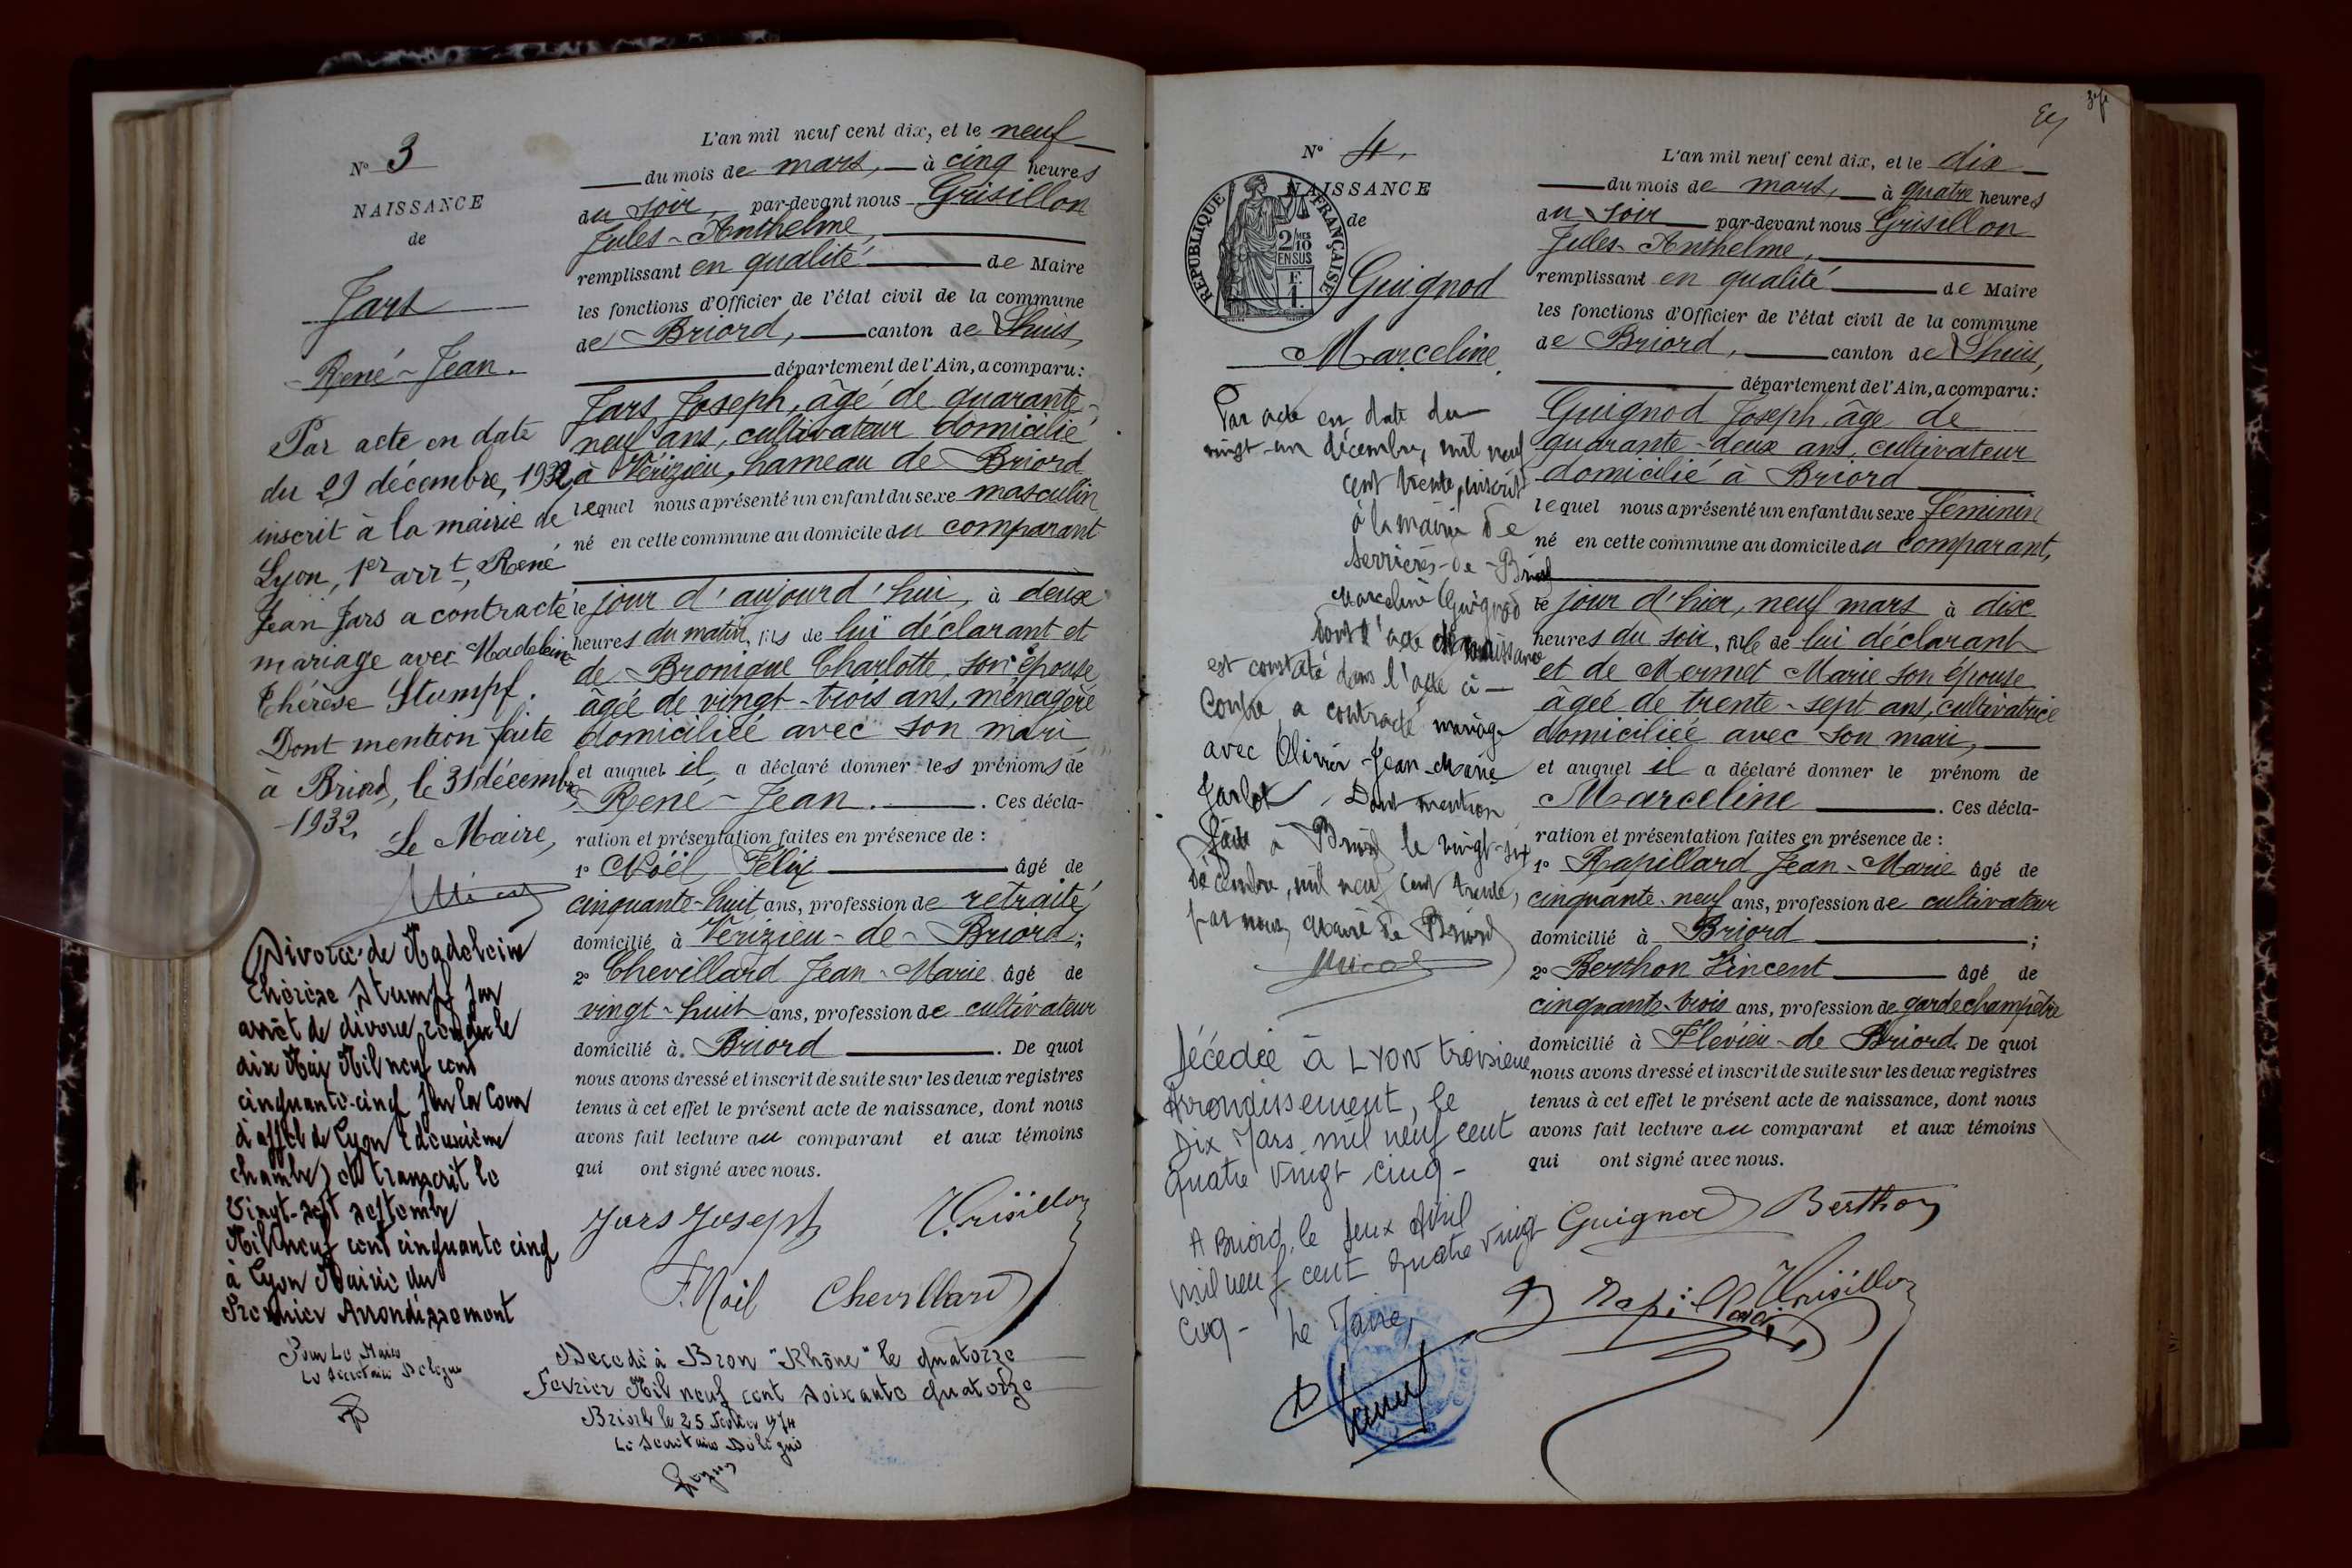 N° 3
NAISSANCE
de
Jars
René-Jean.
Par acte en date
du 29 décembre, 1932,
inscrit à la mairie de
Lyon, 1er arrt, René
Jean Jars a contracté
mariage avec Madeleine
Thérèse Stumpf.
Dont mention faite
à Briord, le 31 décembre
1932.
Le Maire,
Divorce de Madeleine
Thérèse Stumpf par
arrêt de divorce rendu le
dix Mai Mil neuf cent
cinquante-cinq par la Cour
d'appel de Lyon (deuxième
chambre) et transcrit le
Vingt-sept septembre
Mil neuf cent cinquante cinq
à Lyon Mairie du
Premier Arrondissement
Pour Le Maire
Le Secrétaire Délégué
L'an mil neuf cent dix, et le neuf
du mois de mars, à cinq heures
du soir, par-devant nous Grisillon
Jules-Anthelme,
remplissant en qualité de Maire
les fonctions d'Officier de l'état civil de la commune
de Briord, canton de Lhuis,
département de l'Ain, a comparu:
Jars Joseph, âgé de quarante-
neuf ans, cultivateur domicilié
à Vérizieu, hameau de Briord
lequel nous a présenté un enfant du sexe masculin
né en cette commune au domicile du comparant
le jour d'aujourd'hui, à deux
heures du matin, fils de lui déclarant et
de Bronique Charlotte, son épouse
âgée de vingt-trois ans, ménagère
domiciliée avec son mari
et auquel il a déclaré donner les prénoms de
René-Jean. Ces décla-
ration et présentation faites en présence de :
1° Noël Félix âgé de
cinquante-huit ans, profession de retraité
domicilié à Vérizieu-de-Briord;
2° Chevillard Jean-Marie âgé de
vingt-huit ans, profession de cultivateur
domicilié à Briord. De quoi
nous avons dressé et inscrit de suite sur les deux registres
tenus à cet effet le présent acte de naissance, dont nous
avons fait lecture au comparant et aux témoins
qui ont signé avec nous.
Jars Joseph Grisillon
F. Noël Chevillard
Décédé à Bron "Rhône" le quatorze
Février Mil neuf cent soixante quatorze
Briord le 25 Février 1974
Le Secrétaire Délégué
N° 4.
NAISSANCE
de
REPUBLIQUE FRANÇAISE
2/10 MES
EN SUS
F.
1.
Guignod
Marceline
Par acte en date du
vingt-un décembre, mil neuf
cent trente, inscrit
à la mairie de
Serrières-de-Briord
Marceline Guignod
dont l'acte de naissance
est constaté dans l'acte ci-
contre a contracté mariage
avec Olivier Jean-Marie
Jarlot. Dont mention
faite à Briord le vingt-six
décembre, mil neuf cent trente,
par nous, Maire de Briord
Décédée à LYON troisième
Arrondissement, le
Dix Mars mil neuf cent
quatre vingt cinq -
A Briord, le deux Avril
mil neuf cent quatre vingt
cinq - Le Maire,
L'an mil neuf cent dix, et le dix
du mois de mars, à quatre heures
du soir par-devant nous Grisillon
Jules-Anthelme,
remplissant en qualité de Maire
les fonctions d'Officier de l'état civil de la commune
de Briord, canton de Lhuis,
département de l'Ain, a comparu:
Guignod Joseph, âge de
quarante-deux ans, cultivateur
domicilié à Briord
lequel nous a présenté un enfant du sexe féminin
né en cette commune au domicile du comparant,
le jour d'hier, neuf mars à dix
heures du soir, fille de lui déclarant
et de Mermet Marie son épouse
âgée de trente-sept ans, cultivatrice
domiciliée avec son mari,
et auquel il a déclaré donner le prénom de
Marceline. Ces décla-
ration et présentation faites en présence de :
1° Rapillard Jean-Marie âgé de
cinquante-neuf ans, profession de cultivateur
domicilié à Briord ;
2° Berthon Vincent âgé de
cinquante-trois ans, profession de garde champêtre
domicilié à Flévieu-de Briord. De quoi
nous avons dressé et inscrit de suite sur les deux registres
tenus à cet effet le présent acte de naissance, dont nous
avons fait lecture au comparant et aux témoins
qui ont signé avec nous.
Guignod Berthon
Rapillard Grisillon